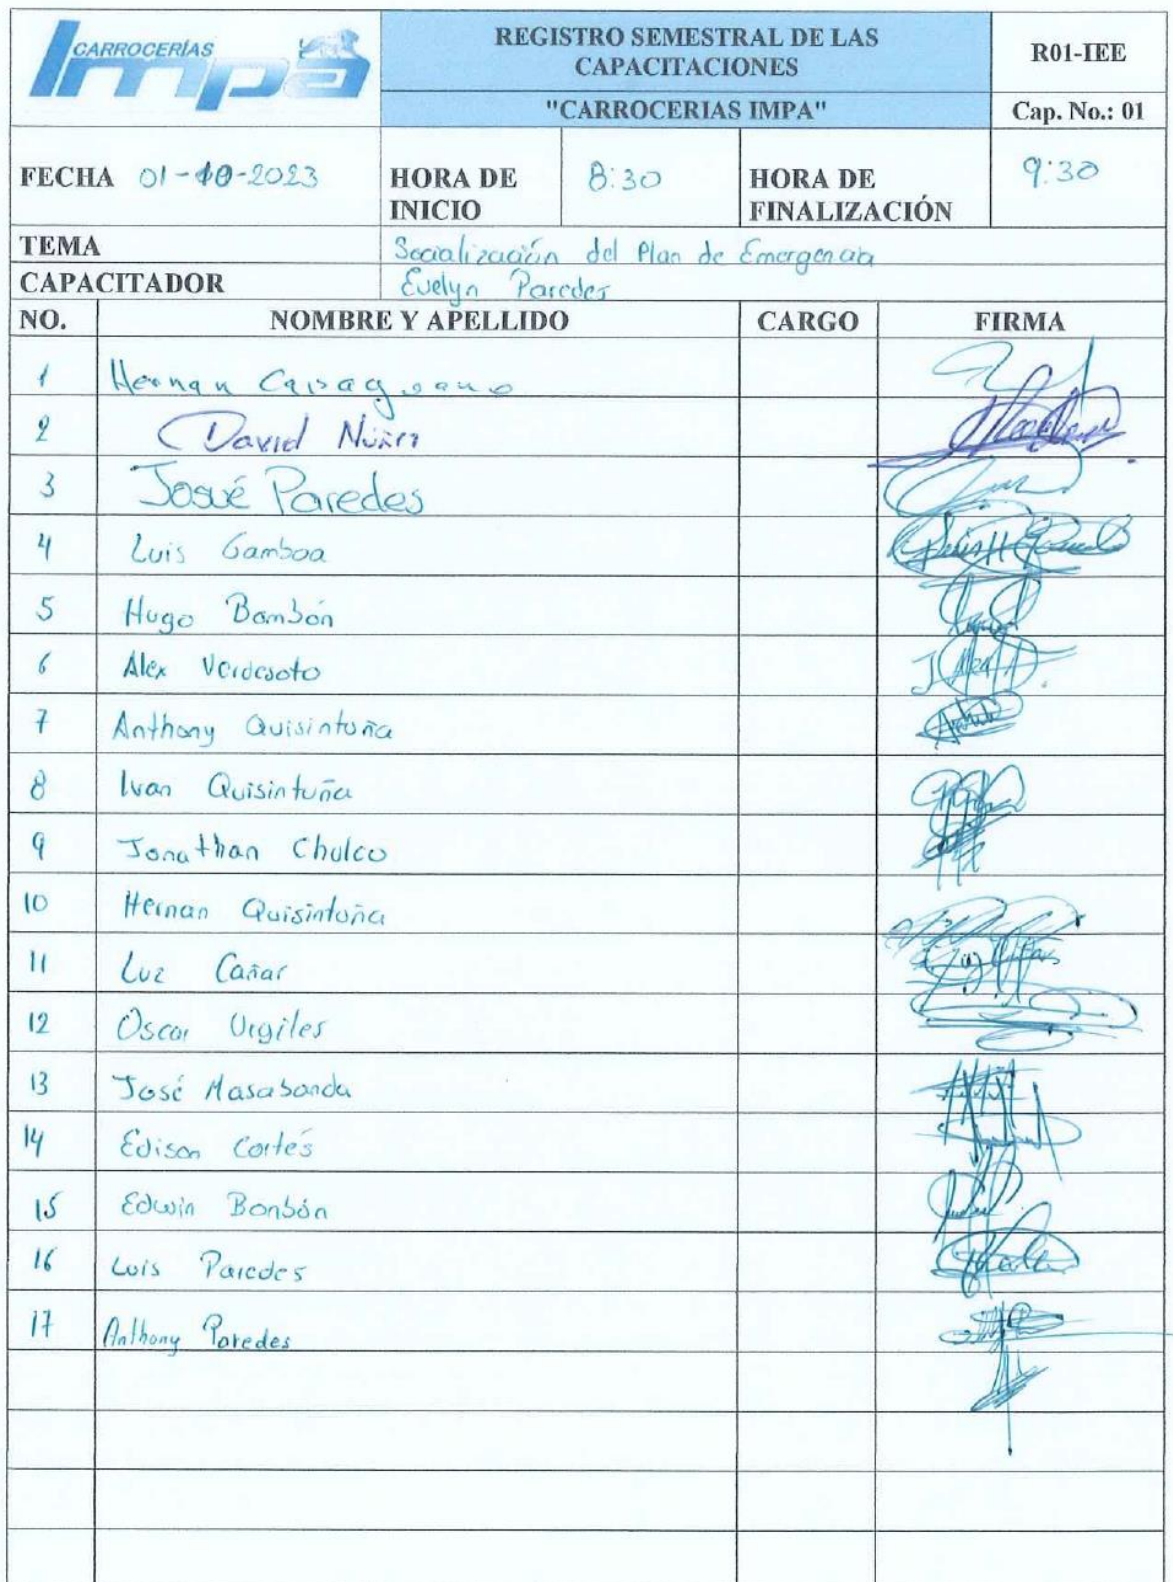 CARROCERÍAS
Impa
REGISTRO SEMESTRAL DE LAS
CAPACITACIONES
R01-IEE
"CARROCERIAS IMPA"
Cap. No.: 01
FECHA 01-10-2023
HORA DE
INICIO
8:30
HORA DE
FINALIZACIÓN
9:30
TEMA
Socialización del Plan de Emergencia
CAPACITADOR
Evelyn Paredes
NO. NOMBRE Y APELLIDO CARGO FIRMA
1 Hernan
2 David Núñez
3 Josué Paredes
4 Luis Gamboa
5 Hugo Bombón
6 Alex Verdesoto
7 Anthony Quisintuña
8 Ivan Quisintuña
9 Jonathan Chulco
10 Hernan Quisintuña
11 Luz Cañar
12 Oscar Urgiles
13 José Masabanda
14 Edison Cortés
15 Edwin Bonbón
16 Luis Paredes
17 Anthony Paredes